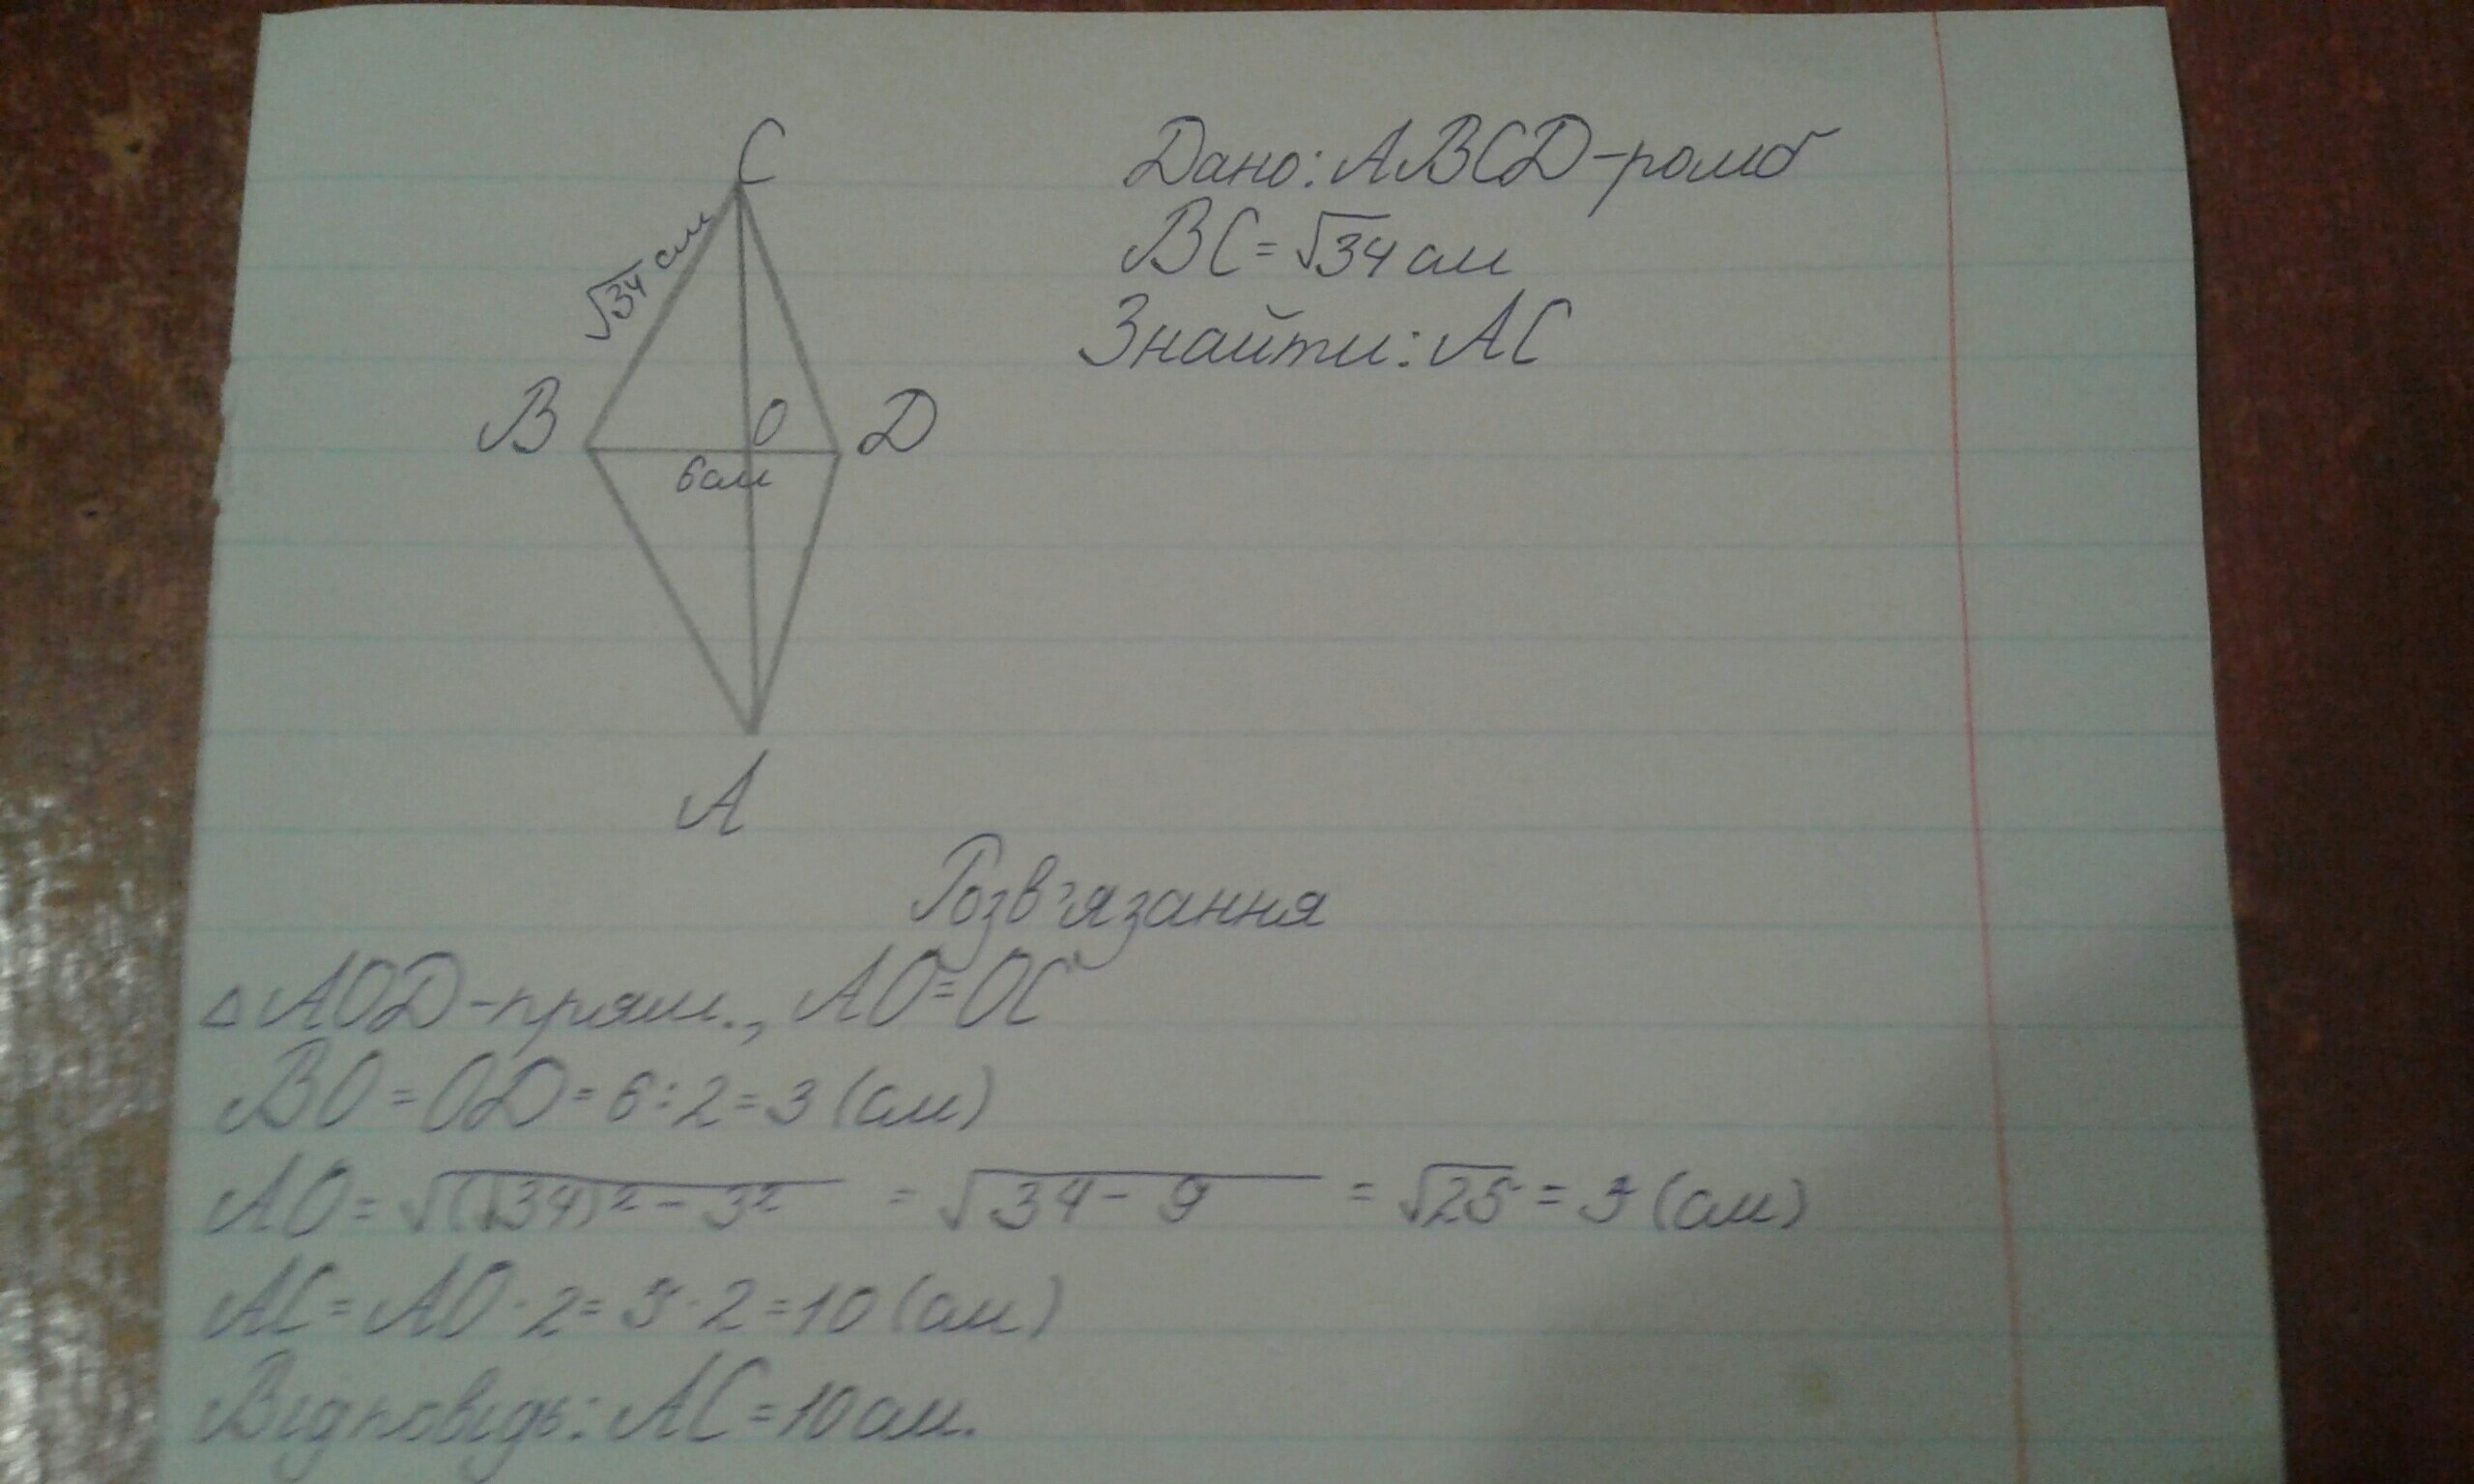 C
√34 см
B
O
D
6см
A
Дано: ABCD-ромб
BC=√34 см
Знайти: AC
Розв'язання
△AOD-прям., AO=OC
BO=OD=6:2=3 (см)
AO=√((√34)²-3²) = √(34-9) = √25 = 5 (см)
AC=AO·2=5·2=10 (см)
Відповідь: AC=10 см.